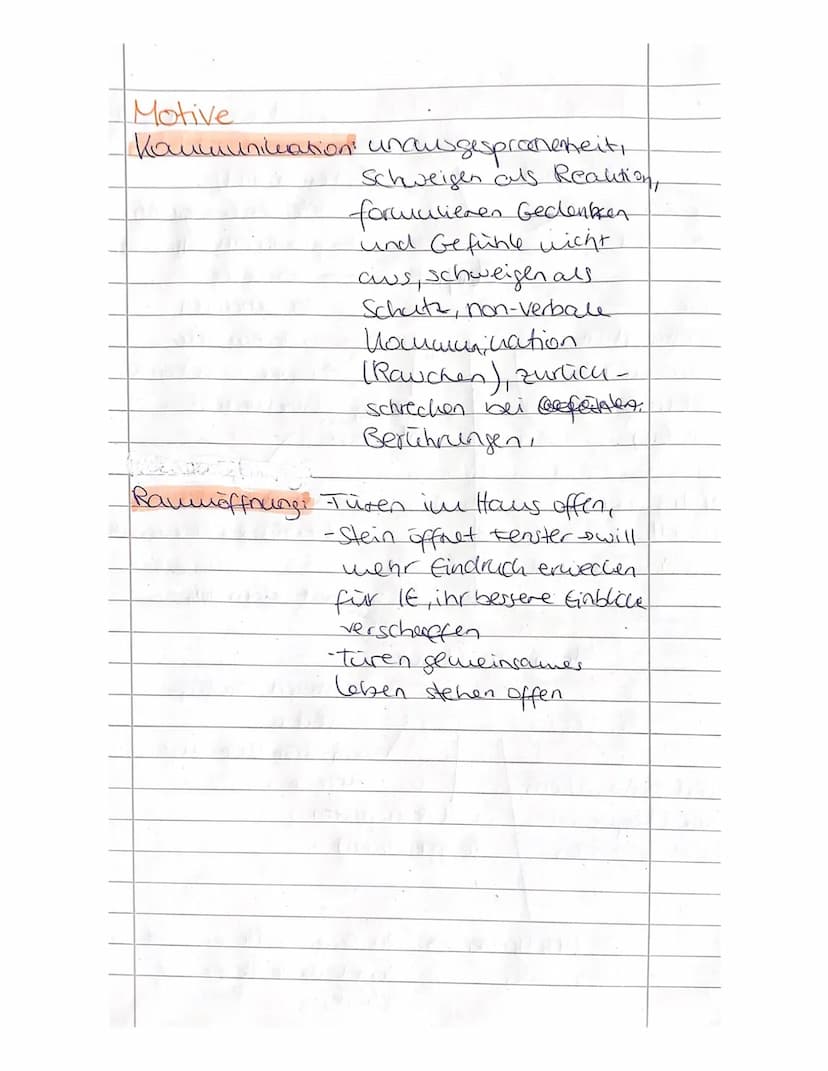 Motive
Kommunikation: unausgesprochenheit,
Schweigen als Reaktion,
formulieren Gedanken
und Gefühle nicht
aus, schweigen als
Schutz, non-verbale
Kommunikation
(Rauchen), zurück-
schrecken bei
Berührungen,
Raumöffnung: -Türen im Haus offen,
-Stein öffnet Fenster → will
mehr Eindruck erwecken
für IE, ihr bessere Einblicke
verschaffen
-Türen gemeinsames
Leben stehen offen